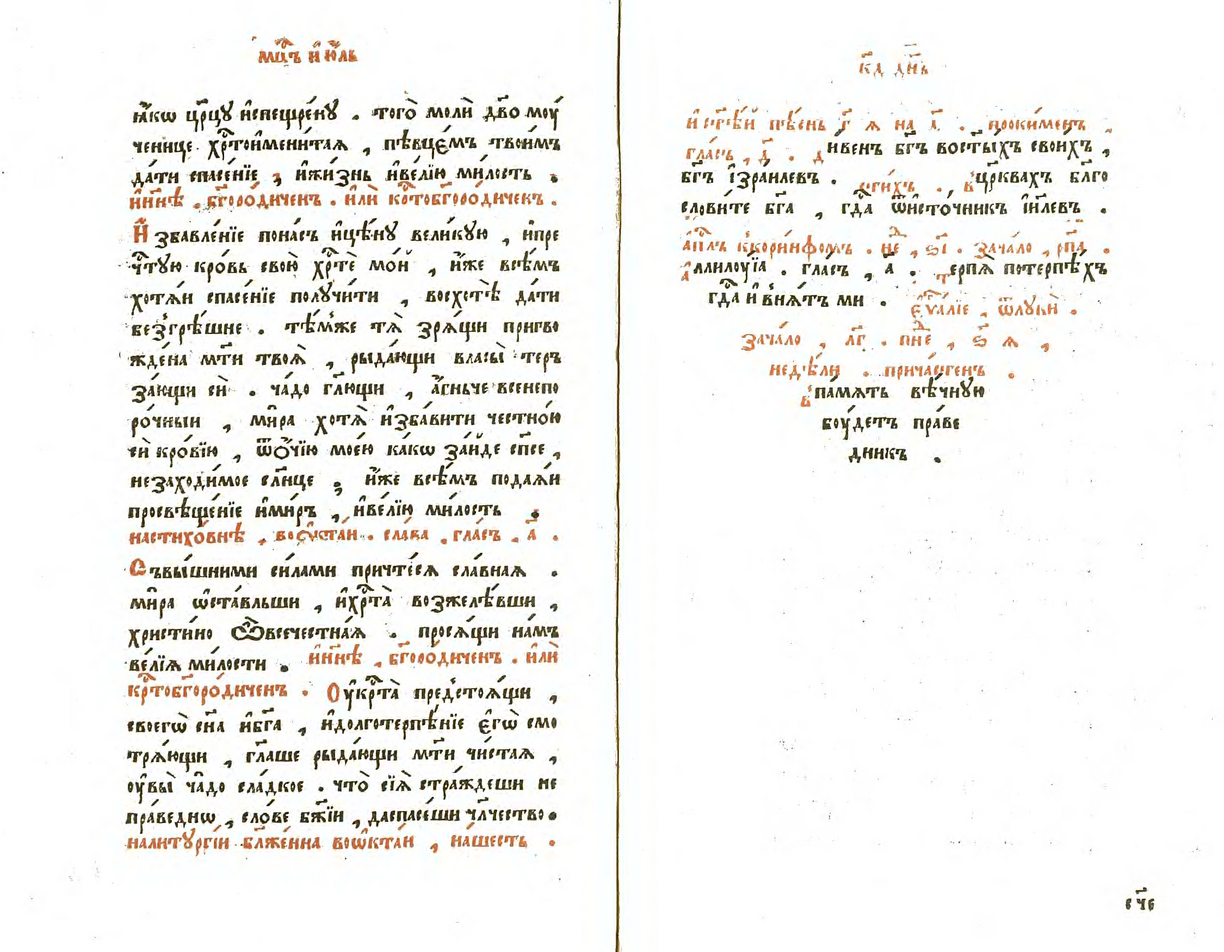 мц҃ъ и҆ю́ль
ꙗ҆́кѡ цр҃цꙋ и҆спещре́нꙋ . того̀ молѝ дв҃о моу́
ченице хр҃тои҆мени́таѧ , пѣвце́мъ твои҆́мъ
да́ти спасе́нїе , и҆жи́знь и҆ве́лїю ми́лость .
и҆нн҃ѣ . бг҃оро́диченъ . и҆лѝ кр҃тобг҃оро́диченъ .
И҆збавле́нїе пона́съ и҆цѣ́нꙋ вели́кꙋю , и҆пре
чⷭ҇тꙋю кро́вь свою̀ хр҃тѐ мо́й , и҆́же всѣ́мъ
хотѧ́и спасе́нїе полꙋчи́ти , восхотѣ̀ да́ти
безгрѣ́шне . тѣ́мже тѧ̀ зрѧ́щи пригво
жде́на мт҃и твоѧ̀ , рыда́ющи власы̀ тер
за́ющи си . ча́до гл҃ющи , а҆́гньче всенепо
ро́чныи , ми́ра хотѧ̀ и҆зба́вити честно́ю
сѝ кро́вїю , ѿо́чїю моє́ю ка́кѡ за́йде сп҃се ,
незаходи́мое сл҃нце , и҆́же всѣ́мъ подаѧ́и
просвѣще́нїе и҆ми́ръ , и҆ве́лїю ми́лость .
настихо́внѣ , воѻ҆кта́и . сла́ва , гла́съ . а҃ .
Съвы́шними си́лами причте́сѧ сла́внаѧ .
ми́ра ѡ҆ста́вльши , и҆хр҃та̀ возжелѣ́вши ,
христи́но ѽвсечестна́ѧ . просѧ́щи на́мъ
ве́лїѧ ми́лости . и҆нн҃ѣ , бг҃оро́диченъ . и҆лѝ
кр҃тобг҃оро́диченъ . Оу҆кр҃та̀ предстоѧ́щи ,
своегѡ̀ сн҃а и҆бг҃а , и҆долготерпѣ́нїе є҆гѡ̀ смо
трѧ́ющи , гл҃аше рыда́ющи мт҃и чи́стаѧ ,
оу҆вы̀ ча́до сла́дкое . что̀ сїѧ̀ стра́ждеши не
пра́веднѡ , сло́ве бж҃їи , даспасе́ши чл҃чество .
налитꙋргі́и бл҃же́нна воѻ҆кта́и , на́шесть .
к҃д дн҃ь
и҆ ст҃ѣ́й пѣ́снь г҃ ѧ на д҃ . проки́менъ ,
гла́съ , д҃ . ди́венъ бг҃ъ восты́хъ свои́хъ ,
бг҃ъ і҆зра́илевъ . сти́хъ . вцр҃квахъ бл҃го
слови́те бг҃а , гдⷭ҇а ѿи҆сто́чникъ і҆и҃левъ .
а҆пⷭ҇лъ ккори́нфомъ . нед , ѕ҃і . зача́ло , рп҃а .
а҆ллилоу́їа . гла́съ , а҃ . терпѧ̀ потерпѣ́хъ
гдⷭ҇а и҆ внѧ́тъ ми . є҆ѵⷢ҇а́лїе , ѿлꙋкѝ .
зача́ло , лг҃ . пне , ѕ҃ ѧ ,
недѣ́ли . прича́стенъ .
впа́мѧть вѣ́чнꙋю
боу́детъ пра́ве
дникъ .
єч҃є